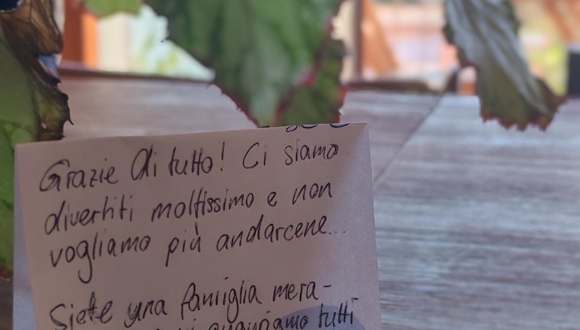 Grazie di tutto! Ci siamo
divertiti moltissimo e non
vogliamo più andarcene...
Siete una famiglia mera-
tutti